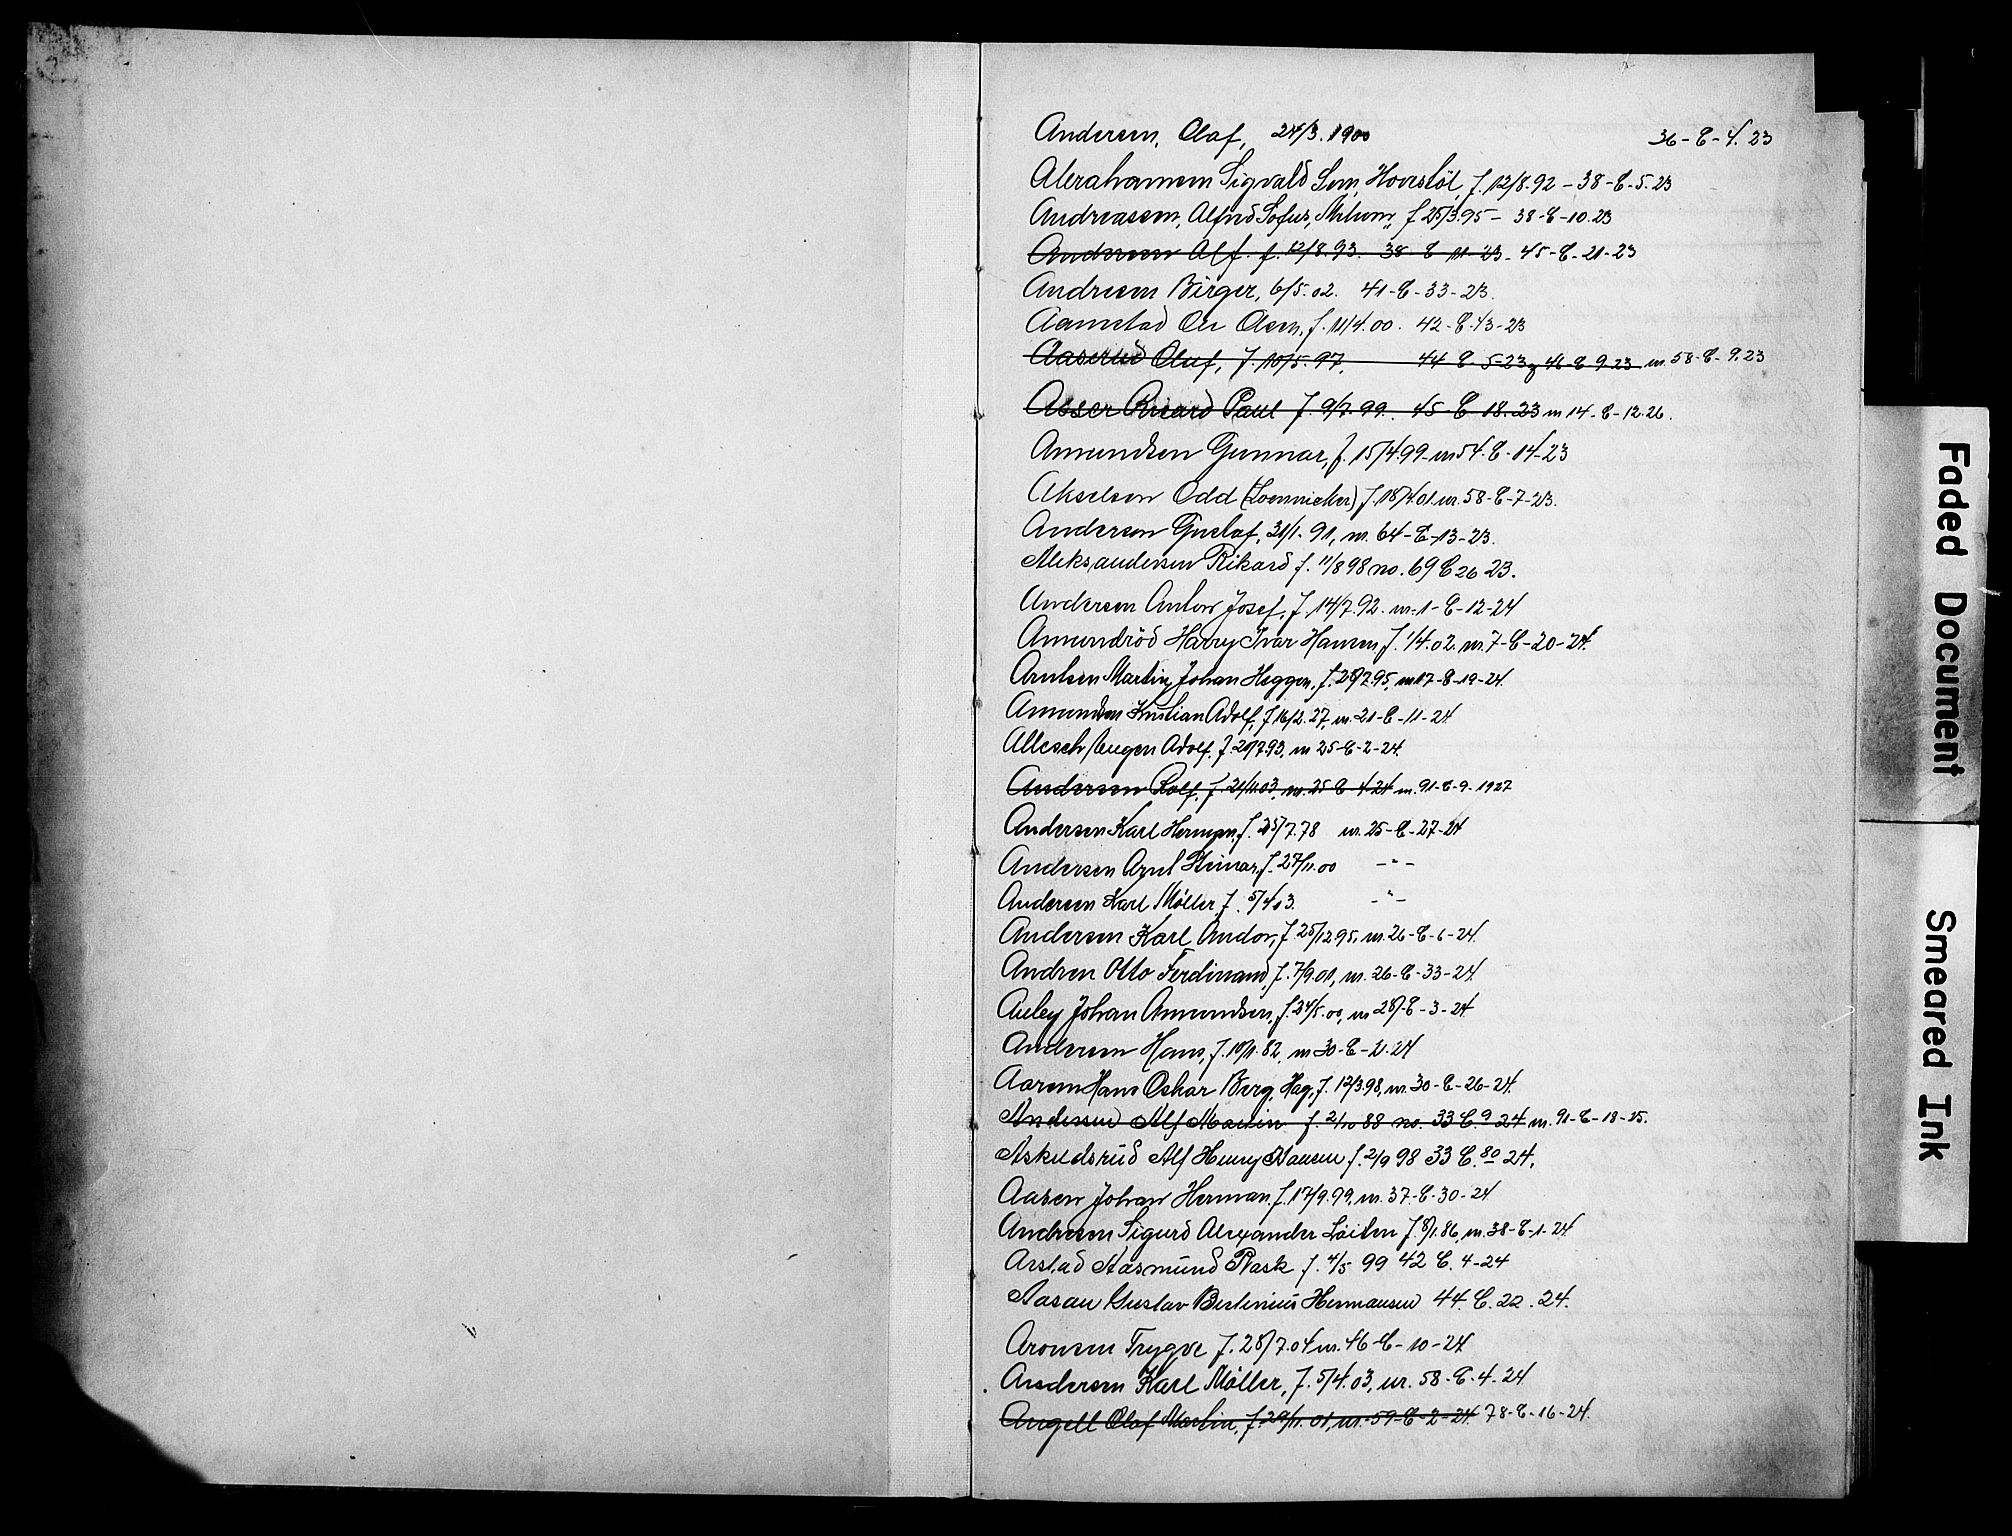 Andersen, Olaf, 24/3. 1900 36-E-4. 23
Abrahamsen Sigvald Sem, Hovrstöl, f. 12/8.92 - 38-E-5.23
Andreassen, Alfred Sofus, f 25/3.95 - 38-E-10.23
Andersen Alf. f. 12/8.93. 38-E-11-23. 45-E-21-23
Andresen Birger, 6/5.02. 41-E-33-23.
Aamstad Ole Olsen, f. 11/4.00. 42-E-13-23
Aaserud Oluf, f. 10/5.97, 44-E-5-23 og 46-E-9.23 nr. 58-E-9.23
Asser Ricard Paul f. 9/7.99. 45-E-18.23 nr 14-E-12.26.
Amundsen Gunnar, f. 15/4.99 nr 54-E-14-23
Akselsen Odd (Loennicker) f. 18/4.01. nr. 58-E-7-23.
Anderson Gustaf, 31/1-91, nr. 64-E-13-23.
Aleksandersen Rikard f. 11/8 98 no. 69 E 26 23.
Andersen Anton Josef, f. 14/7.92. nr. 1-E-12-24
Amundröd Harry Ivar Hansen, f. 1/4.02. nr. 7-E-20-24.
Arntsen Martin Johan Heggen, f. 28/7.95, nr 17-E-19-24.
Amundsen Kristian Adolf, f 16/2.27, nr. 21-E-11-24
Allesch Eugen Adolf, f. 29/7.93, nr 25-E-2-24.
Andersen Rolf, f. 21/11.03, nr. 25-E-4.24 nr. 91-E-9-1927
Andersen Karl Herman, f. 25/7.78 nr. 25-E-27-24
Andersen Axel Heinar, f. 27/11.00 -"-
Andersen Karl Möller, f. 5/4 03. -"-
Andersen Karl Andor, f 25/12 95, nr. 26-E-6-24.
Andren Otto Ferdinand, f. 7/9.01, nr. 26-E-33-24.
Auley Johan Amundsen, f. 24/5.00, nr 28-E-3-24.
Andersen Hans, f. 10/1.82, nr 30-E-2.24
Aaresen Hans Oskar Berg, Hag, f. 12/3.98, nr. 30-E-26-24.
Andersen Alf Martin f. 2/10 88 no. 33 E. 9 24 nr. 91-E-18-25.
Askildsrud Alf Henry Hansen f. 2/9 98 33 E. 80 24.
Aasen Johan Herman, f. 17/9.99, nr. 37-E-30-24
Andresen Sigurd Alexander Löiten f. 8/1.86, nr. 38-E-1-24
Arstad Aasmund Rask f. 4/5 99 42 E. 4-24
Aasau Gustav Bertinius Hermansen 44. E. 22. 24.
Aronsen Trygve f. 28/7.04 nr. 46-E-10-24
Andersen Karl Möller, f. 5/4.03, nr. 58-E-4-24.
Angell Olaf Martin, f. 29/11.01, nr. 59-E-2-24. 78-E-16-24.
Faded Document
Smeared Ink